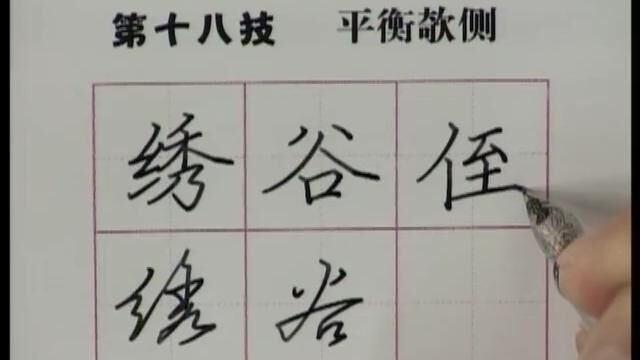 第十八技 平衡欹侧
绣谷侄
绣谷